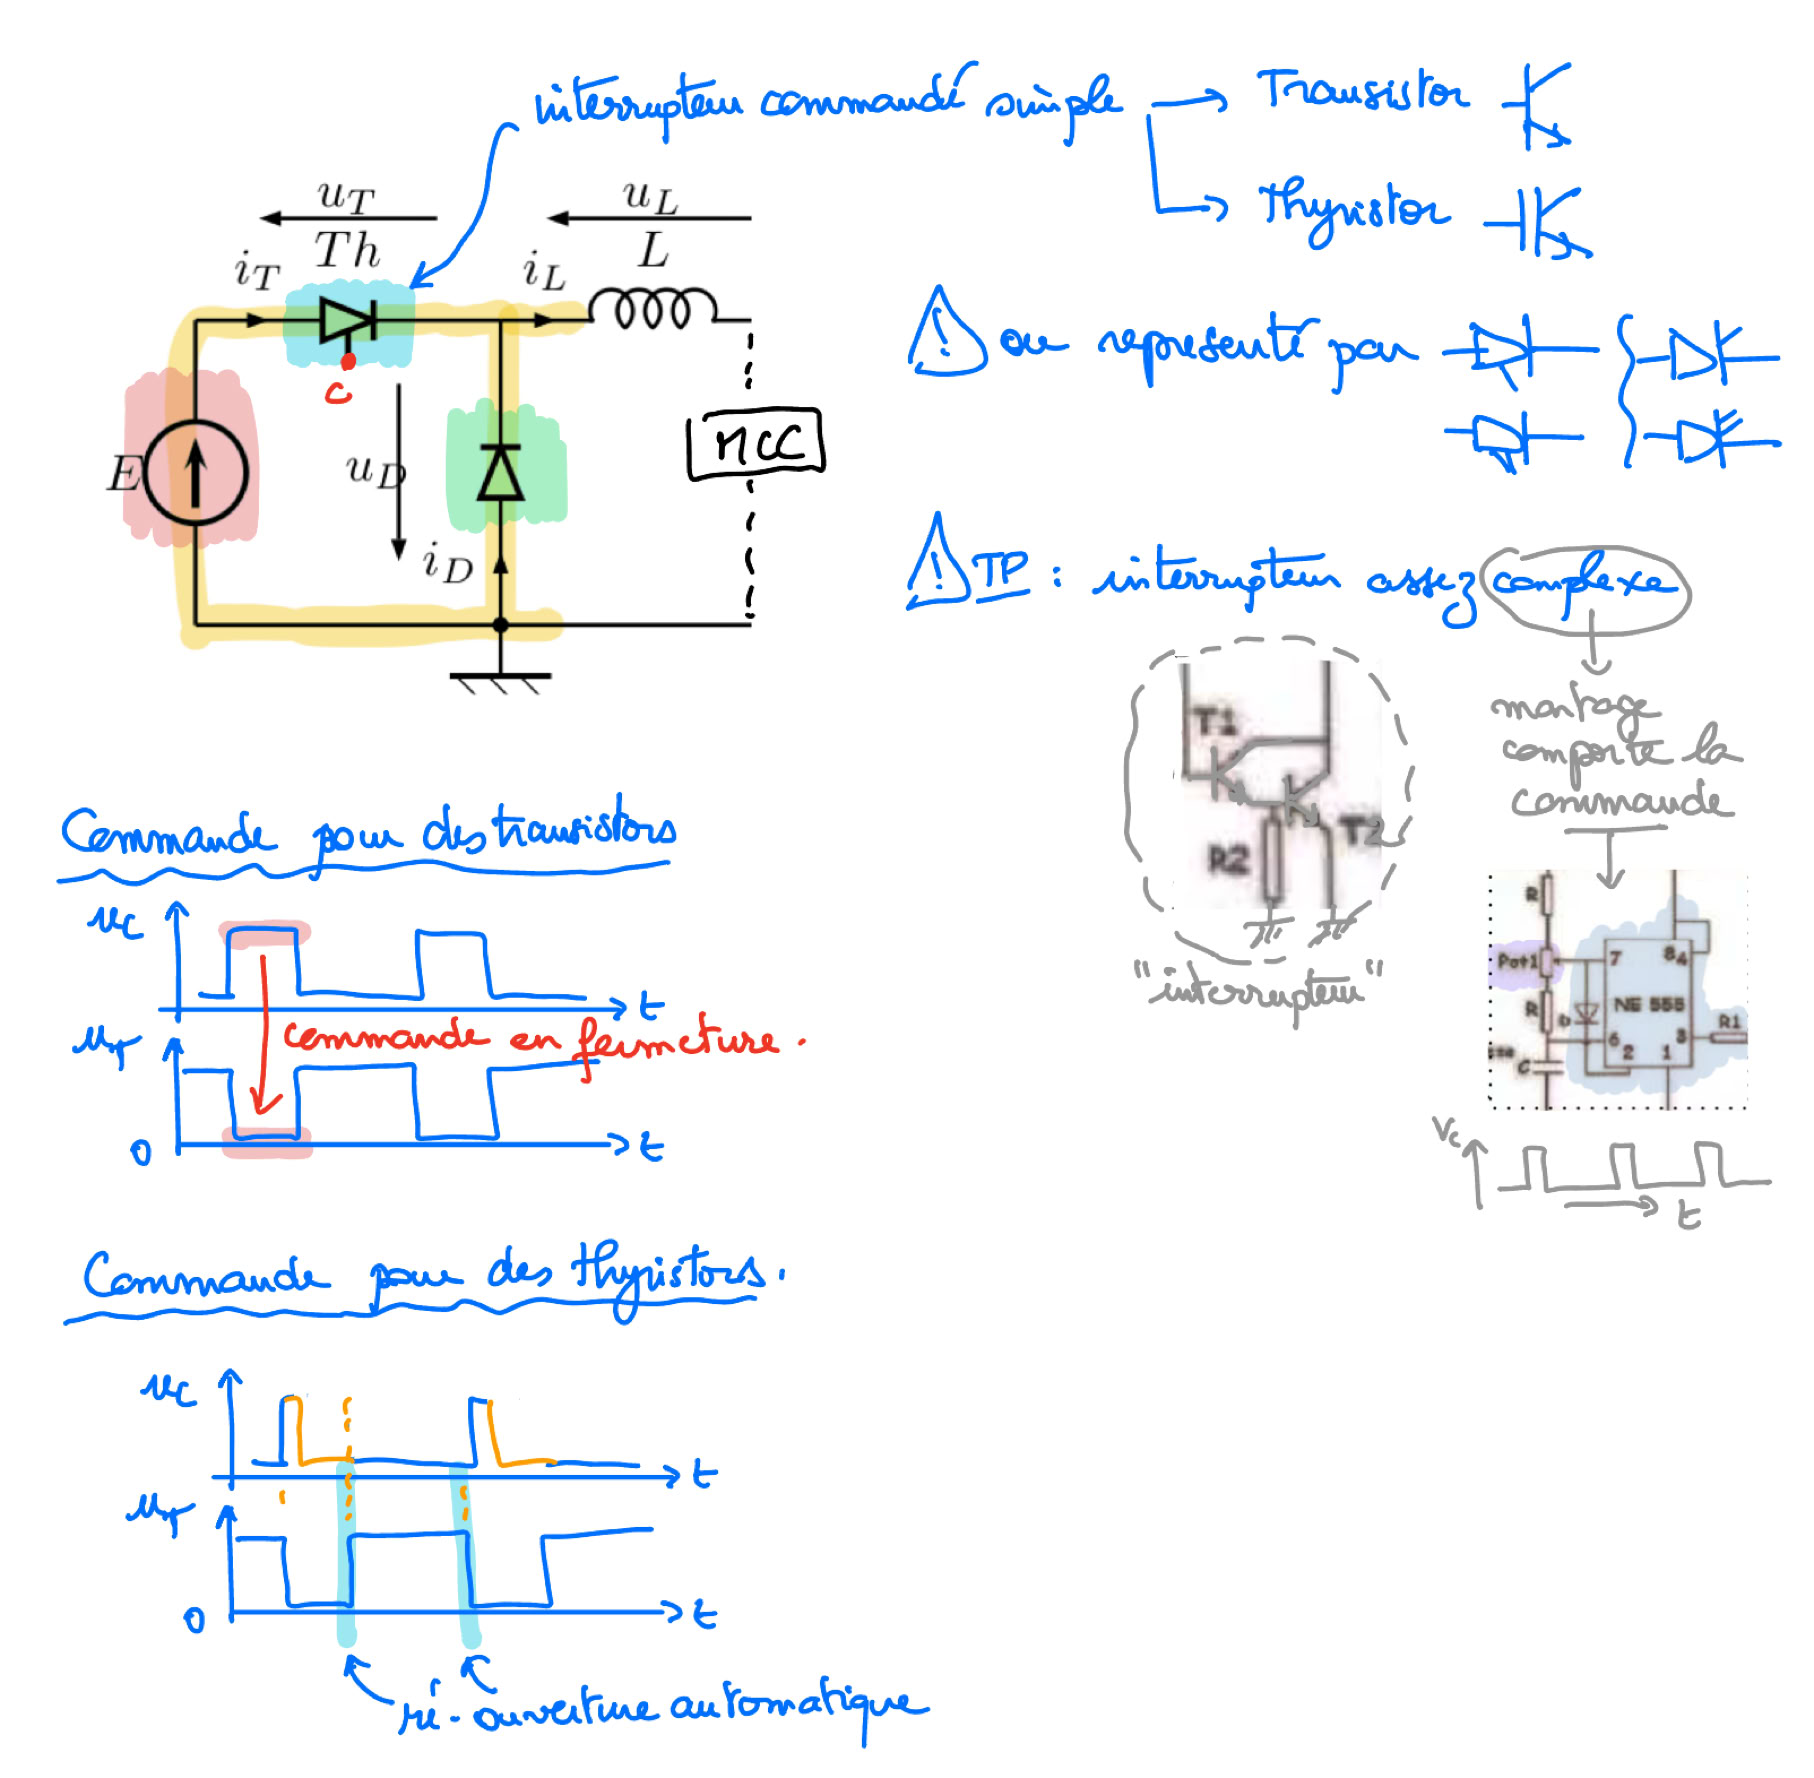 interrupteur commandé simple → Transistor
→ Thyristor
u_T
Th
i_T
u_L
L
i_L
C
E
u_D
i_D
MCC
! ou représenté par
! TP : interrupteur assez complexe
montage
comporte la
commande
T1
T2
R2
"interrupteur"
R
Pot1
7
8 4
R
D
NE 555
R1
6
3
2
1
C
Vc
t
Commande pour des transistors
uc
t
commande en fermeture.
u_T
0
t
Commande pour des thyristors.
uc
t
u_T
0
t
ré-ouverture automatique